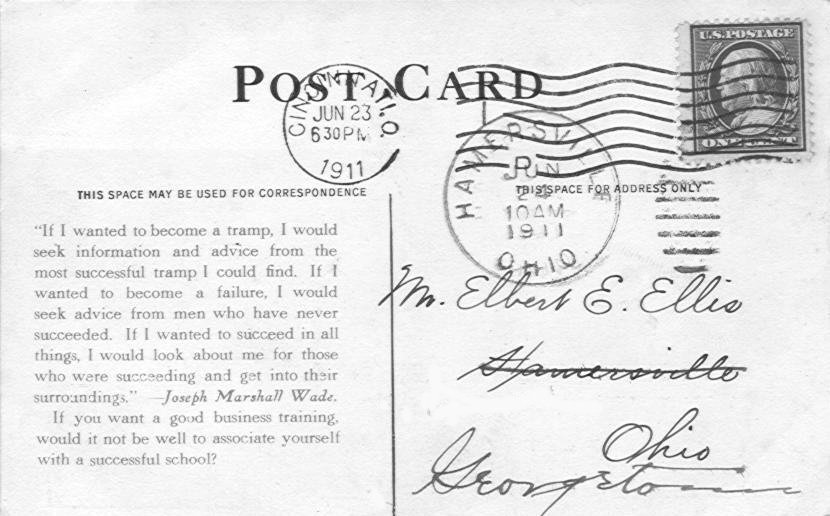 U.S.POSTAGE
POST CARD
CINCINNATI, O.
JUN 23
630PM
1911
ONE CENT
HAMERSVILLE
JUN
24
10AM
1911
OHIO
THIS SPACE MAY BE USED FOR CORRESPONDENCE
THIS SPACE FOR ADDRESS ONLY
“If I wanted to become a tramp, I would
seek information and advice from the
most successful tramp I could find. If I
wanted to become a failure, I would
seek advice from men who have never
succeeded. If I wanted to succeed in all
things, I would look about me for those
who were succeeding and get into their
surroundings.” —Joseph Marshall Wade.
If you want a good business training,
would it not be well to associate yourself
with a successful school?
Mr. Elbert E. Ellis
Hamersville
Ohio
Georgetown